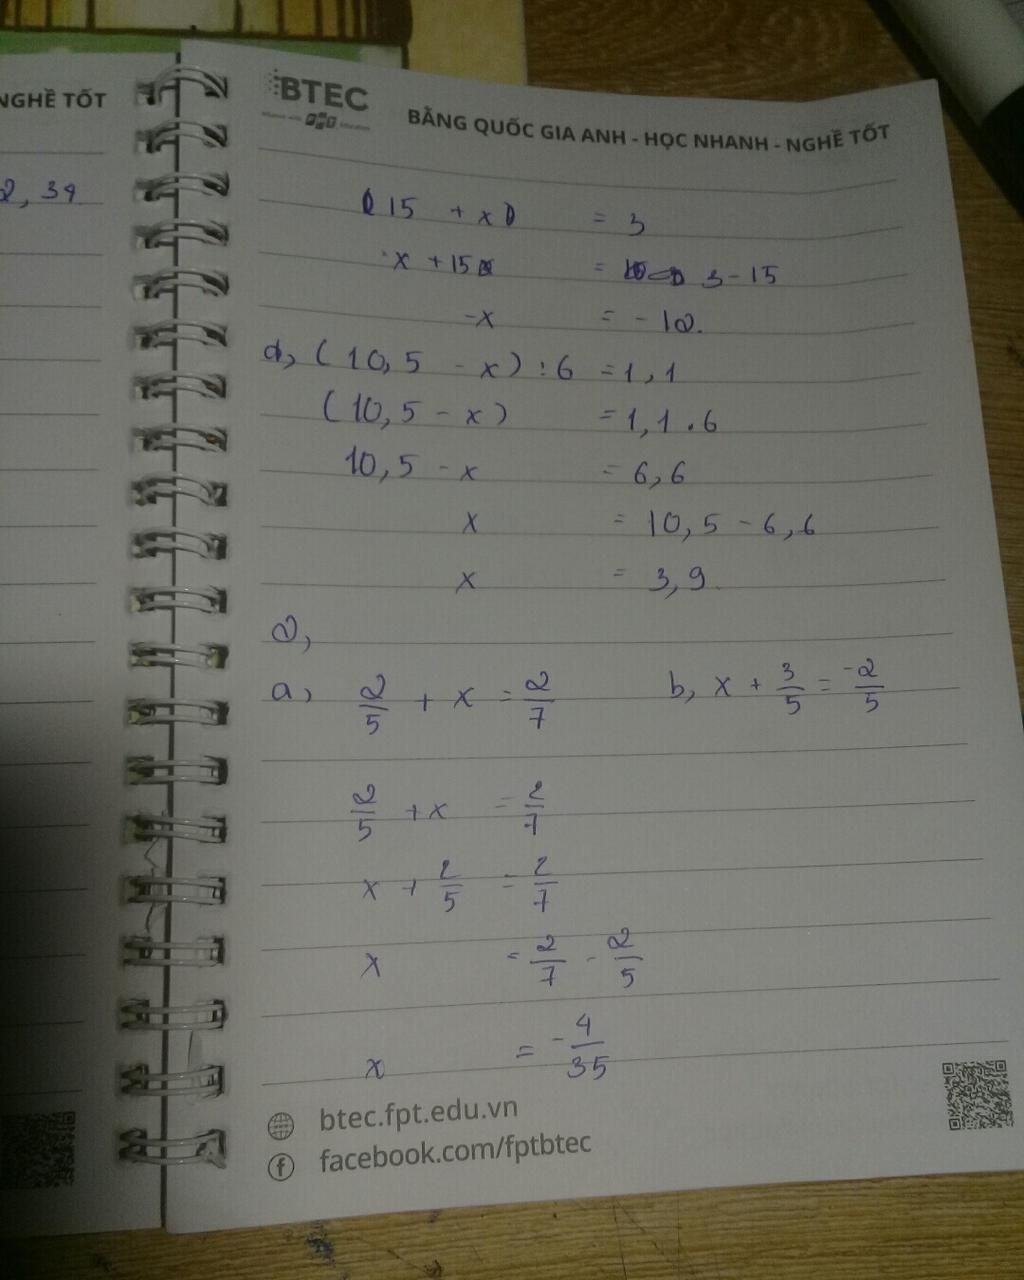 NGHỀ TỐT
2, 39
BTEC
BẰNG QUỐC GIA ANH - HỌC NHANH - NGHỀ TỐT
(15 + x) = 3
x + 15 = 3 - 15
-x = - 12.
d, (10,5 - x) : 6 = 1,1
(10,5 - x) = 1,1 . 6
10,5 - x = 6,6
x = 10,5 - 6,6
x = 3,9
2,
a, 2/5 + x = 2/7 b, x + 3/5 = -2/5
2/5 + x = 2/7
x + 2/5 = 2/7
x = 2/7 - 2/5
x = -4/35
btec.fpt.edu.vn
facebook.com/fptbtec